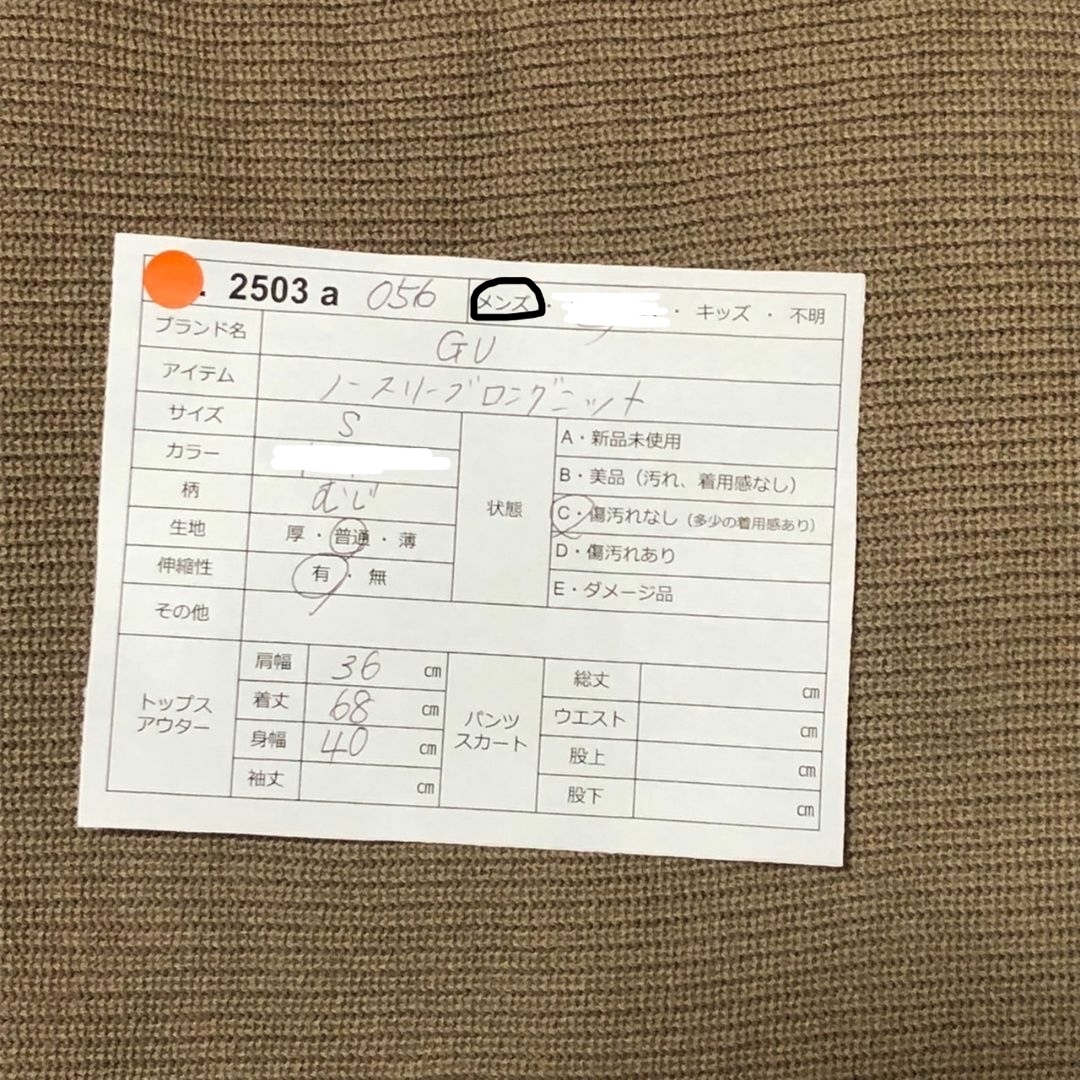 2503 a 056 メンズ・ ・ キッズ ・ 不明
ブランド名 GU
アイテム ノースリーブロングニット
サイズ S
カラー
柄 むじ
生地 厚・普通・薄
伸縮性 有・無
その他
状態
A・新品未使用
B・美品（汚れ、着用感なし）
C・傷汚れなし（多少の着用感あり）
D・傷汚れあり
E・ダメージ品
トップス
アウター
肩幅 36 cm
着丈 68 cm
身幅 40 cm
袖丈 cm
パンツ
スカート
総丈 cm
ウエスト cm
股上 cm
股下 cm